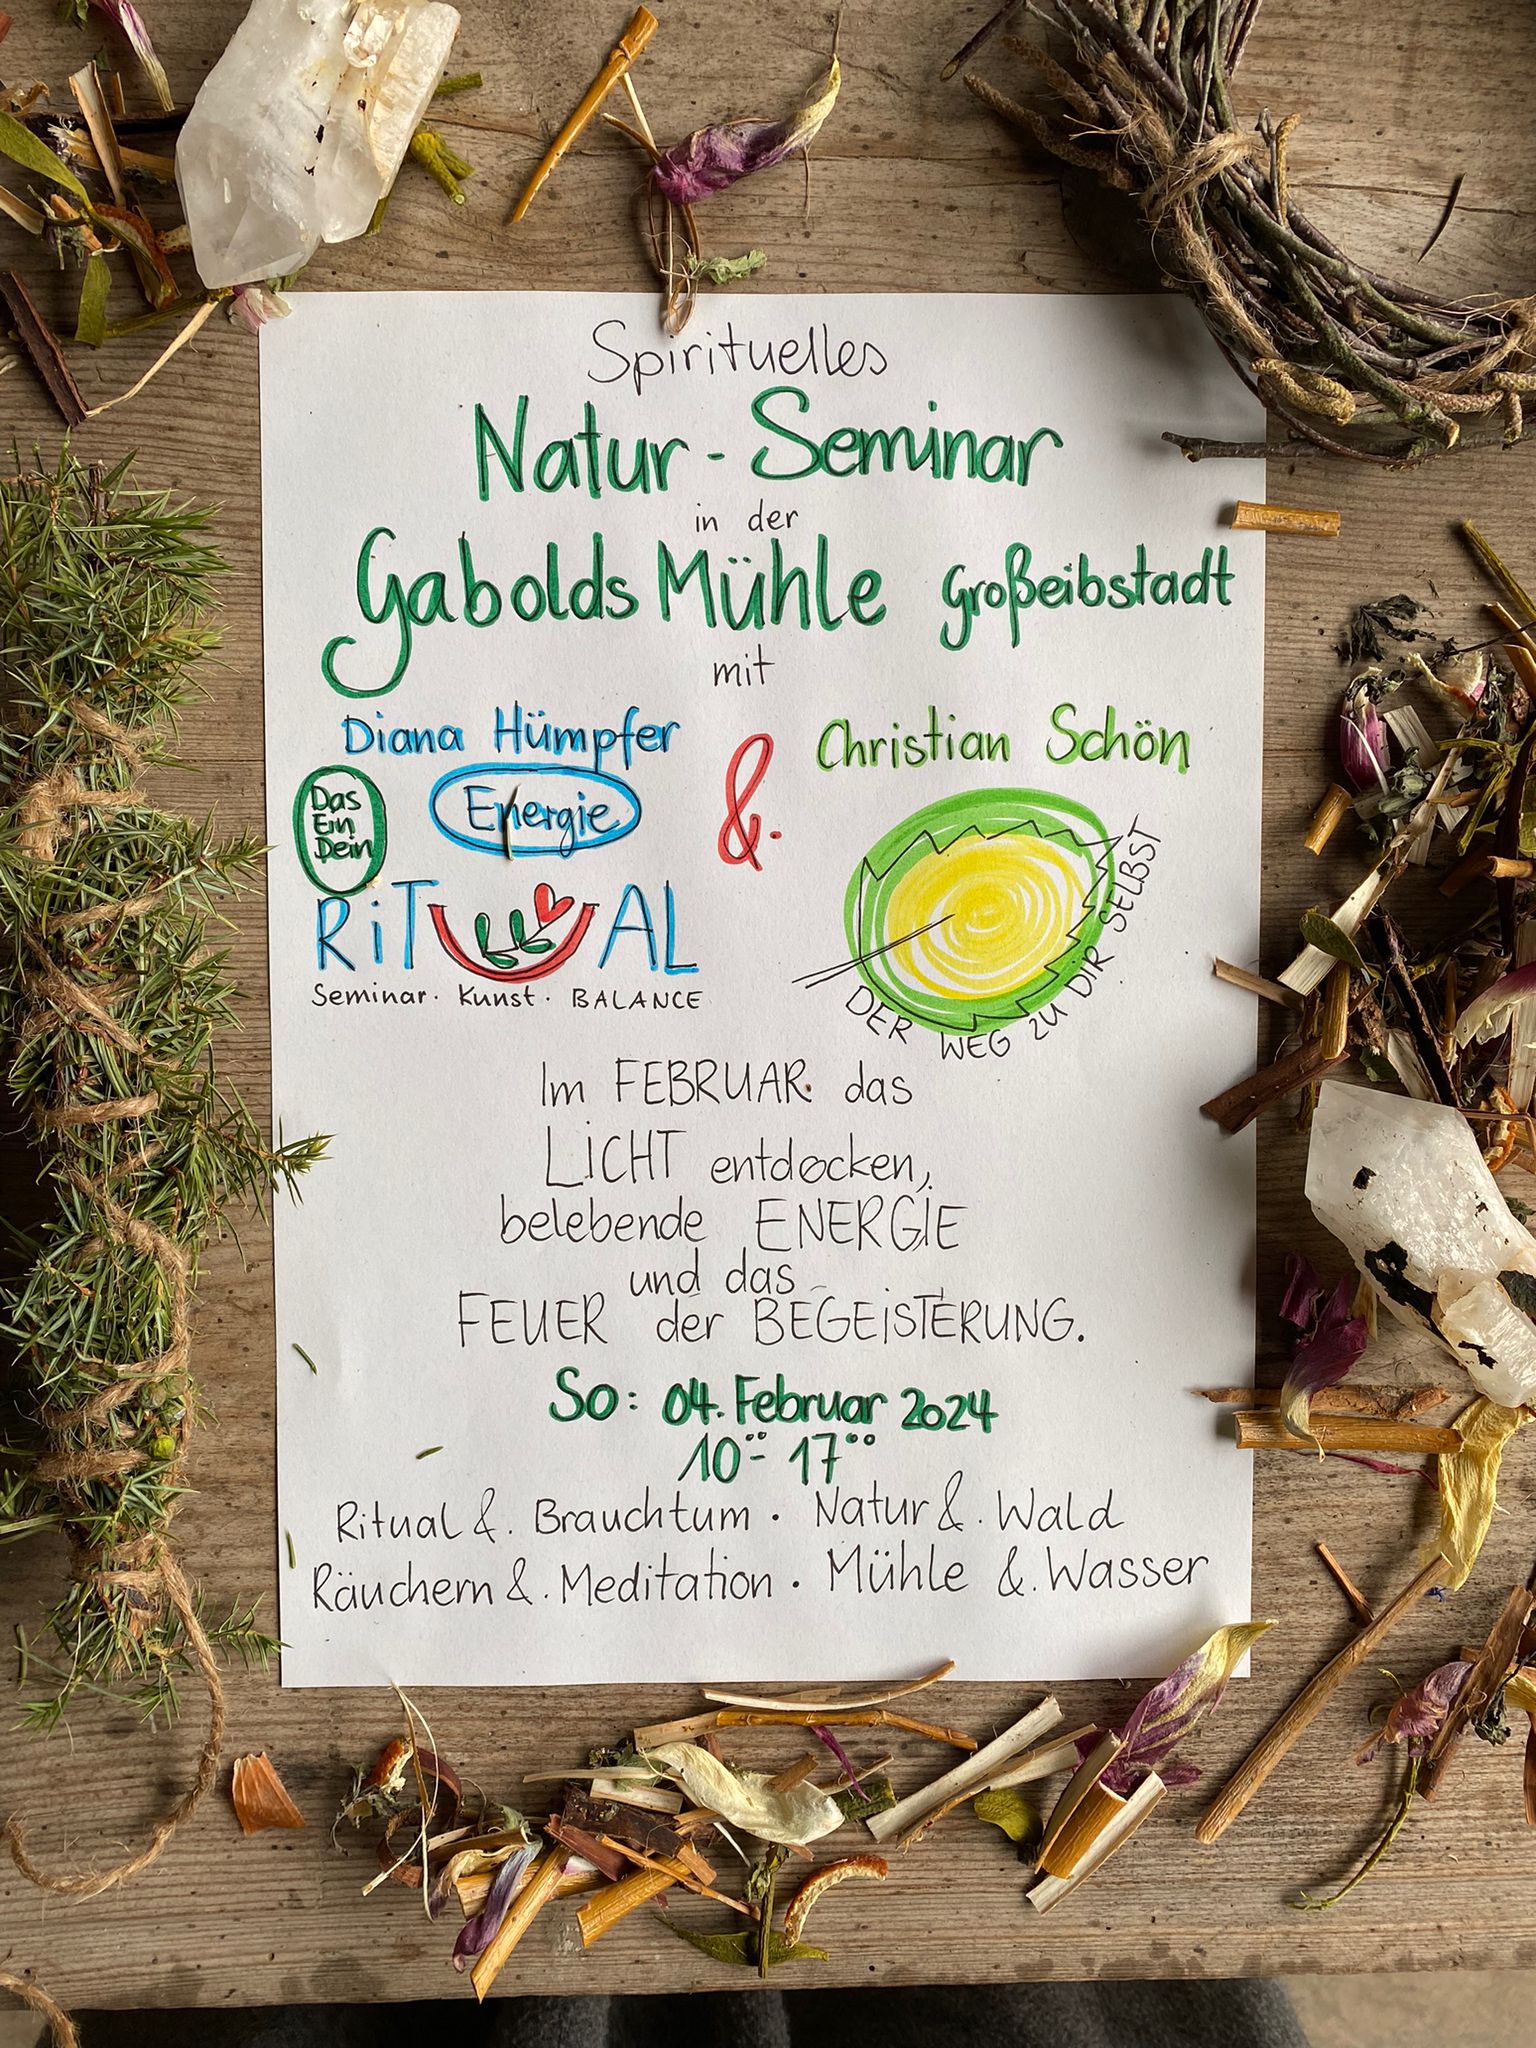 Spirituelles
Natur - Seminar
in der
Gabolds Mühle Großeibstadt
mit
Diana Hümpfer & Christian Schön
Das
Ein
Dein
Energie
RiTUAL
Seminar · Kunst · BALANCE
DER WEG ZU DIR SELBST
Im FEBRUAR das
LiCHT entdecken,
belebende ENERGIE
und das
FEUER der BEGEiSTERUNG.
So: 04. Februar 2024
10°° - 17°°
Ritual & Brauchtum · Natur & Wald
Räuchern & Meditation · Mühle & Wasser